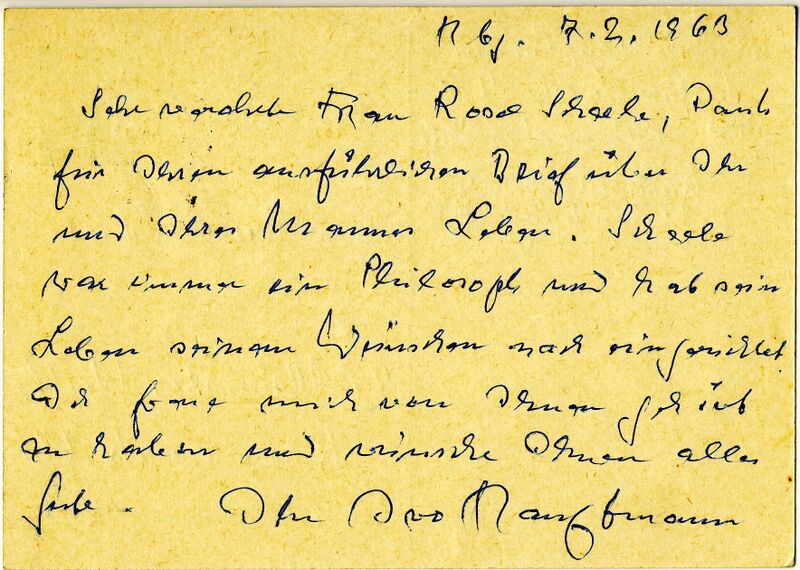 Hbg. 7.2.1963
Sehr verehrte Frau Rosa Schaele, Dank
für Ihren ausführlichen Brief über Ihr
und Ihres Mannes Leben. Schaele
war immer ein Philosoph und hab sein
Leben seinen Wünschen nach eingerichtet
Ich freue mich von Ihnen gehört
zu haben und wünsche Ihnen alles
Gute. Ihr Ivo Hauptmann